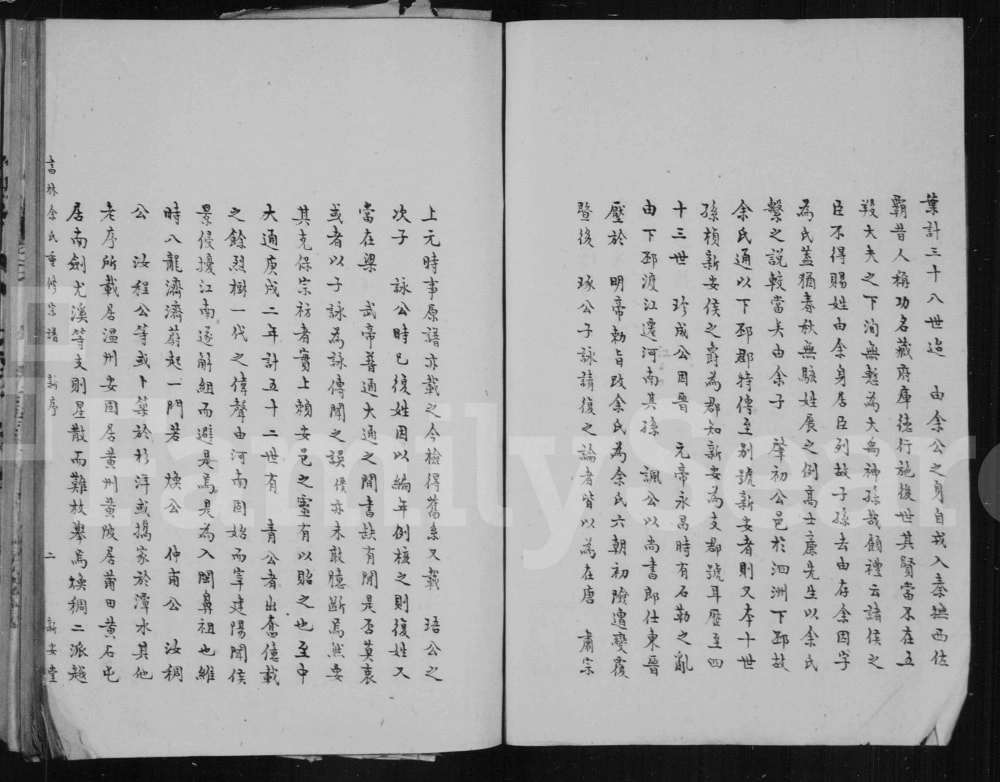 葉計三十八世迨　由余公之身自戎入秦撫西佐
霸昔人稱功名藏府庫德行施後世其賢當不在五
羖大夫之下洵無慙為大禹神孫哉顧禮云諸侯之
臣不得賜姓由余身居臣列故子孫去由存余因字
為氏蓋猶春秋無駭姓展之例高士廉先生以余氏
繫之說較當矣由余子　犖初公邑於泗洲下邳故
余氏通以下邳郡特傳至别號新安者則又本十世
孫楨新安侯之爵為郡知新安為支郡號耳歷至四
十三世　珍成公因晉　元帝永昌時有石勒之亂
由下邳渡江遷河南其孫　諷公以尚書郎仕東晉
壓於　明帝勅旨改余氏為余氏六朝初際遭變覆
暨後　琢公子詠請復之論者皆以為在唐　肅宗
上元時事原譜亦載之今檢得舊系又載　琣公之
次子　詠公時已復姓因以編年例核之則復姓又
當在梁　武帝普通大通之間書缺有間是否莫衷
或者以子詠為詠傳聞之誤僕亦未敢臆斷焉然要
其克保宗祊者實上賴安邑之靈有以貽之也至中
大通庚戌二年計五十二世有　青公者出奮億載
之餘烈樹一代之偉聲由河南固始而宰建陽聞侯
景侵擾江南遂解組而避是焉是為入閩鼻祖也維
時八龍濟濟蔚起一門若　煥公　仲甫公　汝稠
公　汝程公等或卜築於杉洋或搆家於潭水其他
老序所載居溫州安固居黄州黄陂居莆田黄石屯
居南劍尤溪等支則星散而難攷舉焉煥稠二派越
書林余氏重修宗譜　新序　二　新安堂